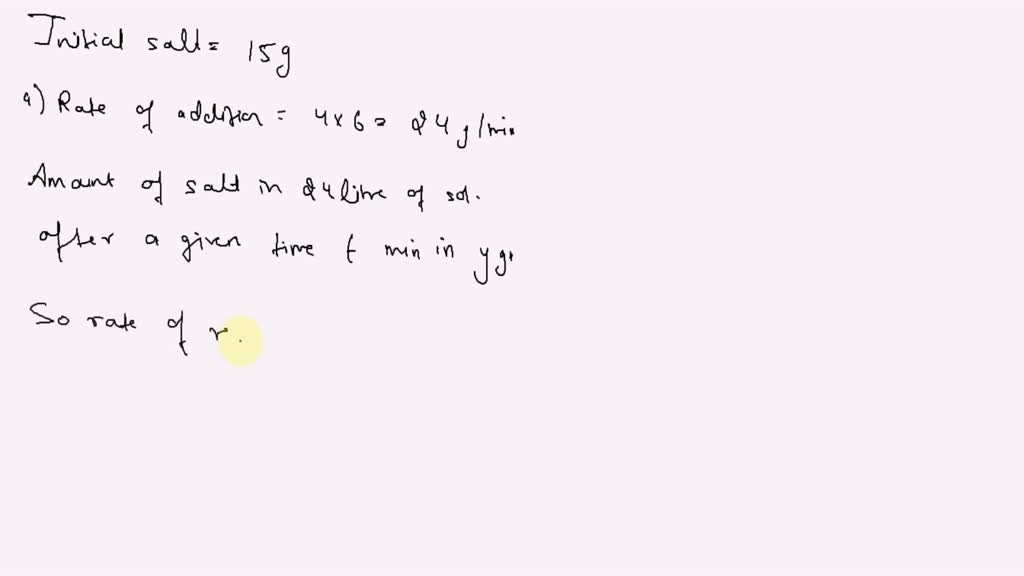 Initial salt = 15g
a) Rate of addition = 4 x 6 = 24 g/min
Amount of salt in 24 litre of sol.
after a given time t min in y gr
So rate of r.